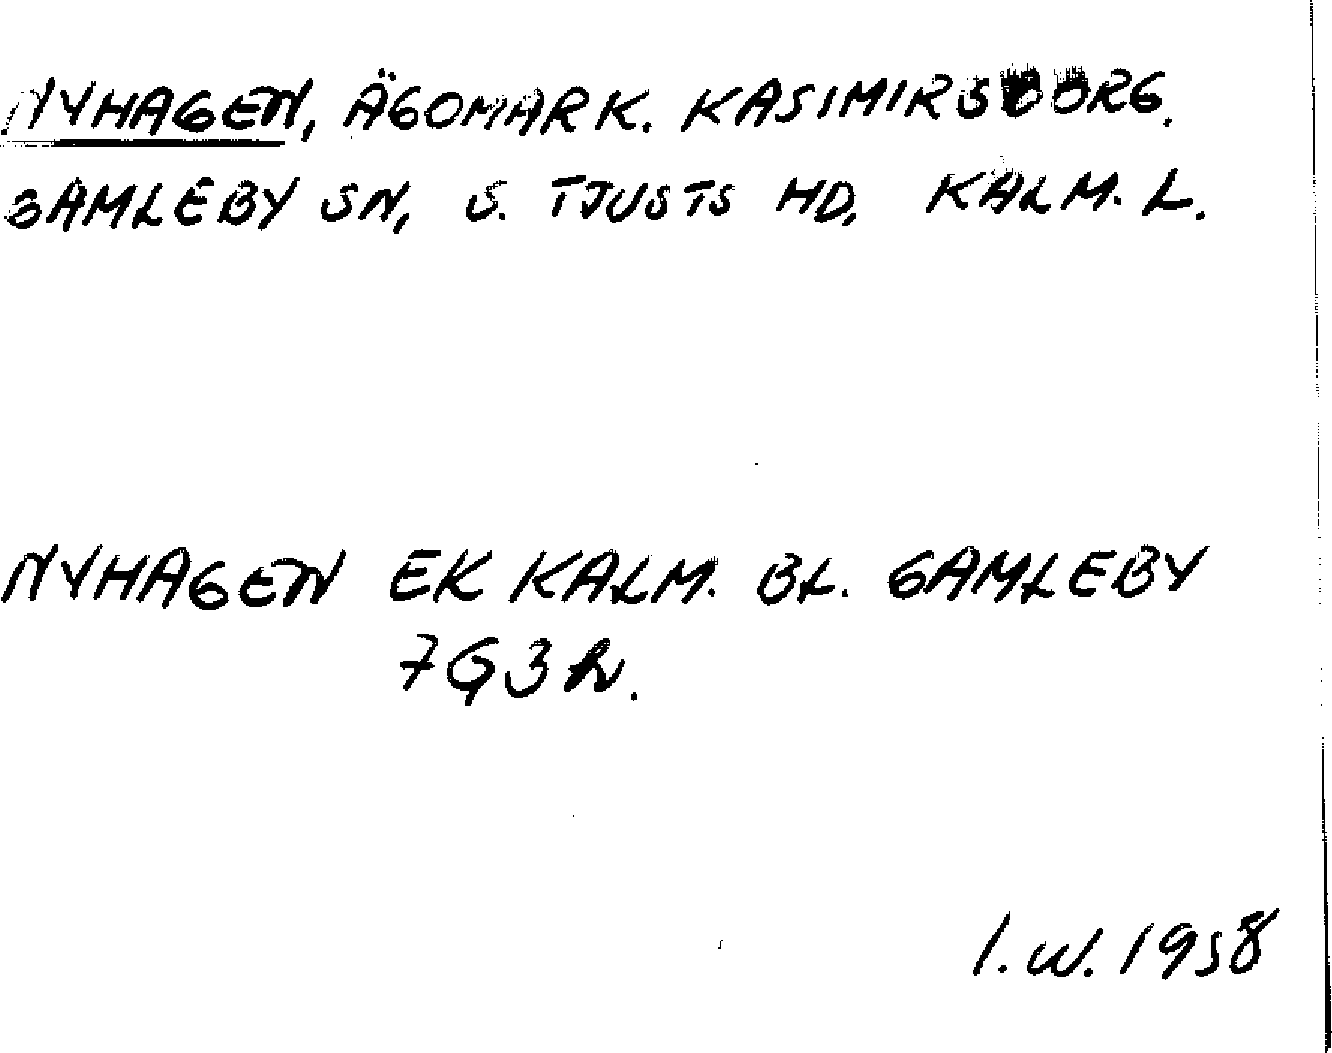 NYHAGEN, ÄGOMARK. KASIMIRSBORG.
GAMLEBY SN, S. TJUSTS HD, KALM. L.
NYHAGEN EK KALM. BL. GAMLEBY
7G3h.
I.W. 1958